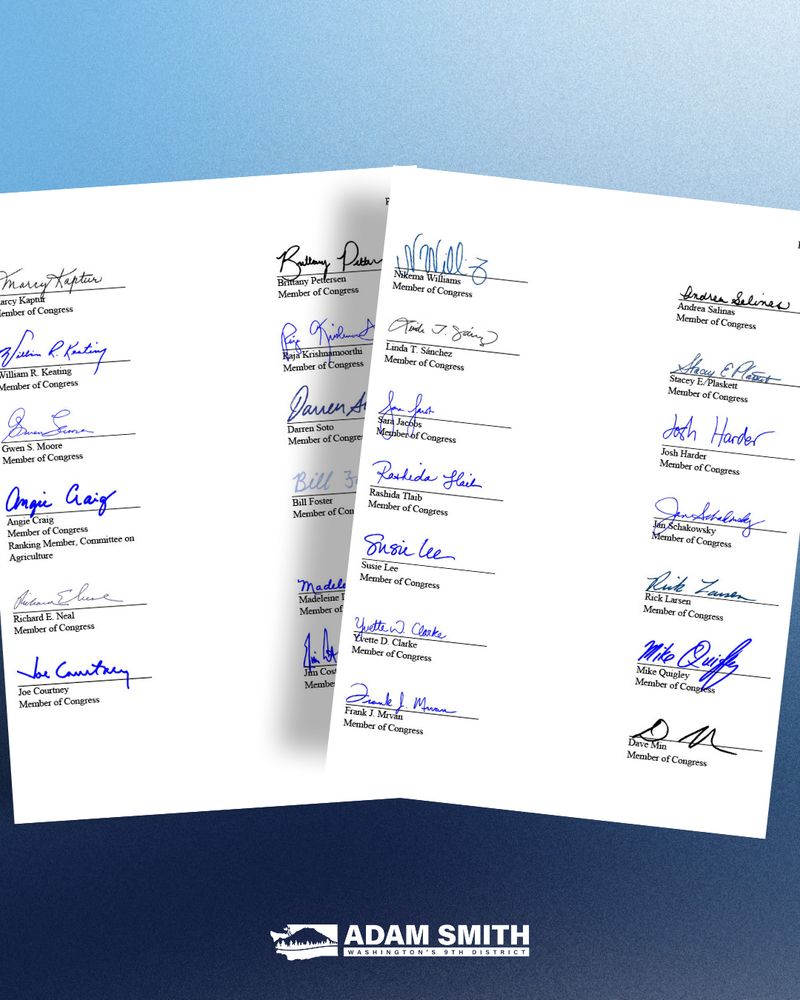 Marcy Kaptur
arcy Kaptur
ember of Congress
William R. Keating
William R. Keating
Member of Congress
Gwen S. Moore
Member of Congress
Angie Craig
Angie Craig
Member of Congress
Ranking Member, Committee on
Agriculture
Richard E. Neal
Member of Congress
Joe Courtney
Joe Courtney
Member of Congress
Brittany Petter
Brittany Pettersen
Member of Congress
Raja Krishnamoorthi
Member of Congress
Darren So
Darren Soto
Member of Congre
Bill Fo
Bill Foster
Member of Con
Madele
Madeleine
Member of
Jim Cos
Membe
Nikema Williams
Member of Congress
Linda T. Sánchez
Linda T. Sánchez
Member of Congress
Sara Jacobs
Sara Jacobs
Member of Congress
Rashida Tlaib
Rashida Tlaib
Member of Congress
Susie Lee
Susie Lee
Member of Congress
Yvette D. Clarke
Yvette D. Clarke
Member of Congress
Frank J. Mrvan
Frank J. Mrvan
Member of Congress
Andrea Salinas
Andrea Salinas
Member of Congress
Stacey E Plaskett
Stacey E. Plaskett
Member of Congress
Josh Harder
Josh Harder
Member of Congress
Jan Schakowsky
Jan Schakowsky
Member of Congress
Rick Larsen
Rick Larsen
Member of Congress
Mike Quigley
Mike Quigley
Member of Congress
Dave Min
Member of Congress
ADAM SMITH
WASHINGTON'S 9TH DISTRICT